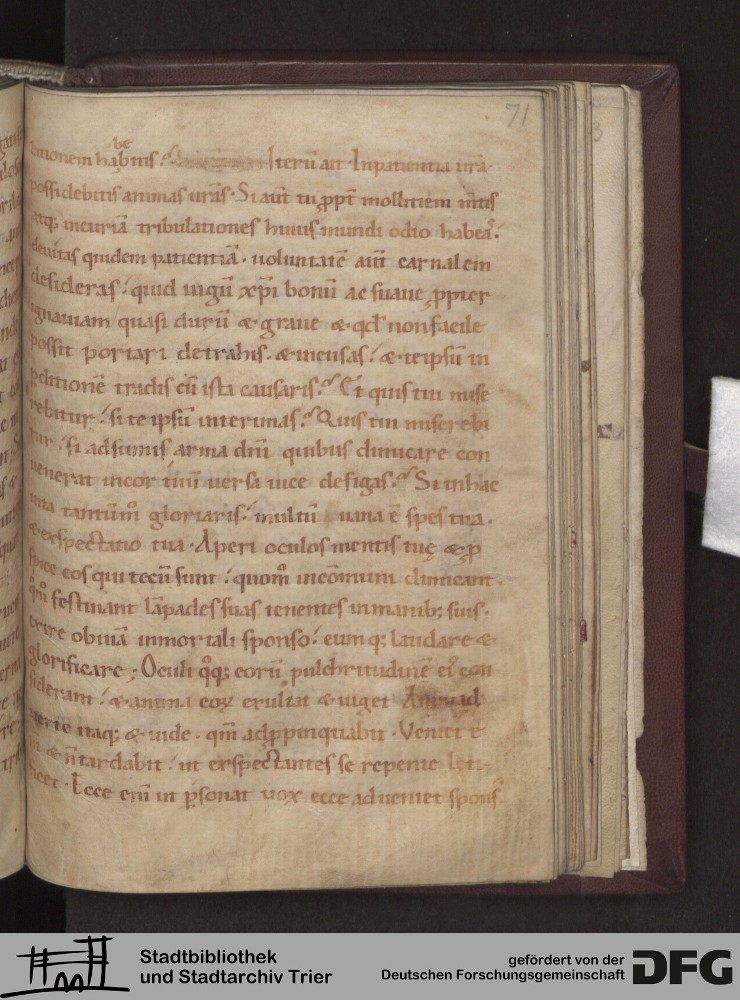 71
lationem habebitis. Iterū ait. Inpatientia urā
possidebitis animas urās. Si aūt tu ꝓpt̄ mollitiem m̄tis
atq; incuriā tribulationes huius mundi odio habeas.
deuitas quidem patientiā. uoluntatē aūt carnalem
desideras. quid iugū xp̄i bonū ac suaue ꝓpter
ignauiam quasi durū & graue & qd̄ non facile
possit portari detrahis. & incusas. & teipsū in
ꝑditionē tradis cū ista causaris. Et quis tui mise
rebitur. si te ipsū interimas. Quis tui miserebi
tur. si adsumis arma dn̄i quibus dimicare con
uenerat in cor tuū uersa uice defigas. Si in hac
uita tantūm̄ gloriaris. multū uana ē spes tua.
& exspectatio tua. Aperi oculos mentis tuę & ꝓ
spice eos qui tecū sunt. quom̄ indimicant.
qm̄ festinant lāpades suas tenentes in manib; suis.
exire obuiā inmortali sponso. eumq; laudare &
glorificare. Oculi q̄q; eorū pulchritudinē ei con
siderant. & anima eoꝝ exultat & uiget. Animad
uerte itaq; & uide. qm̄ adꝓpinquabit. Veniet ē
& n̄ tardabit. ut exspectantes se repente leti
ficet. Ecce eni ut ꝑsonat uox ecce adueniet spons.
Stadtbibliothek
und Stadtarchiv Trier
gefördert von der
Deutschen Forschungsgemeinschaft
DFG